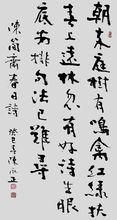 朝来庭樹有鳴禽紅綠扶
春上遠林忽有好詩生眼
底安排句法已難尋
陳簡齋春日詩 陳永正